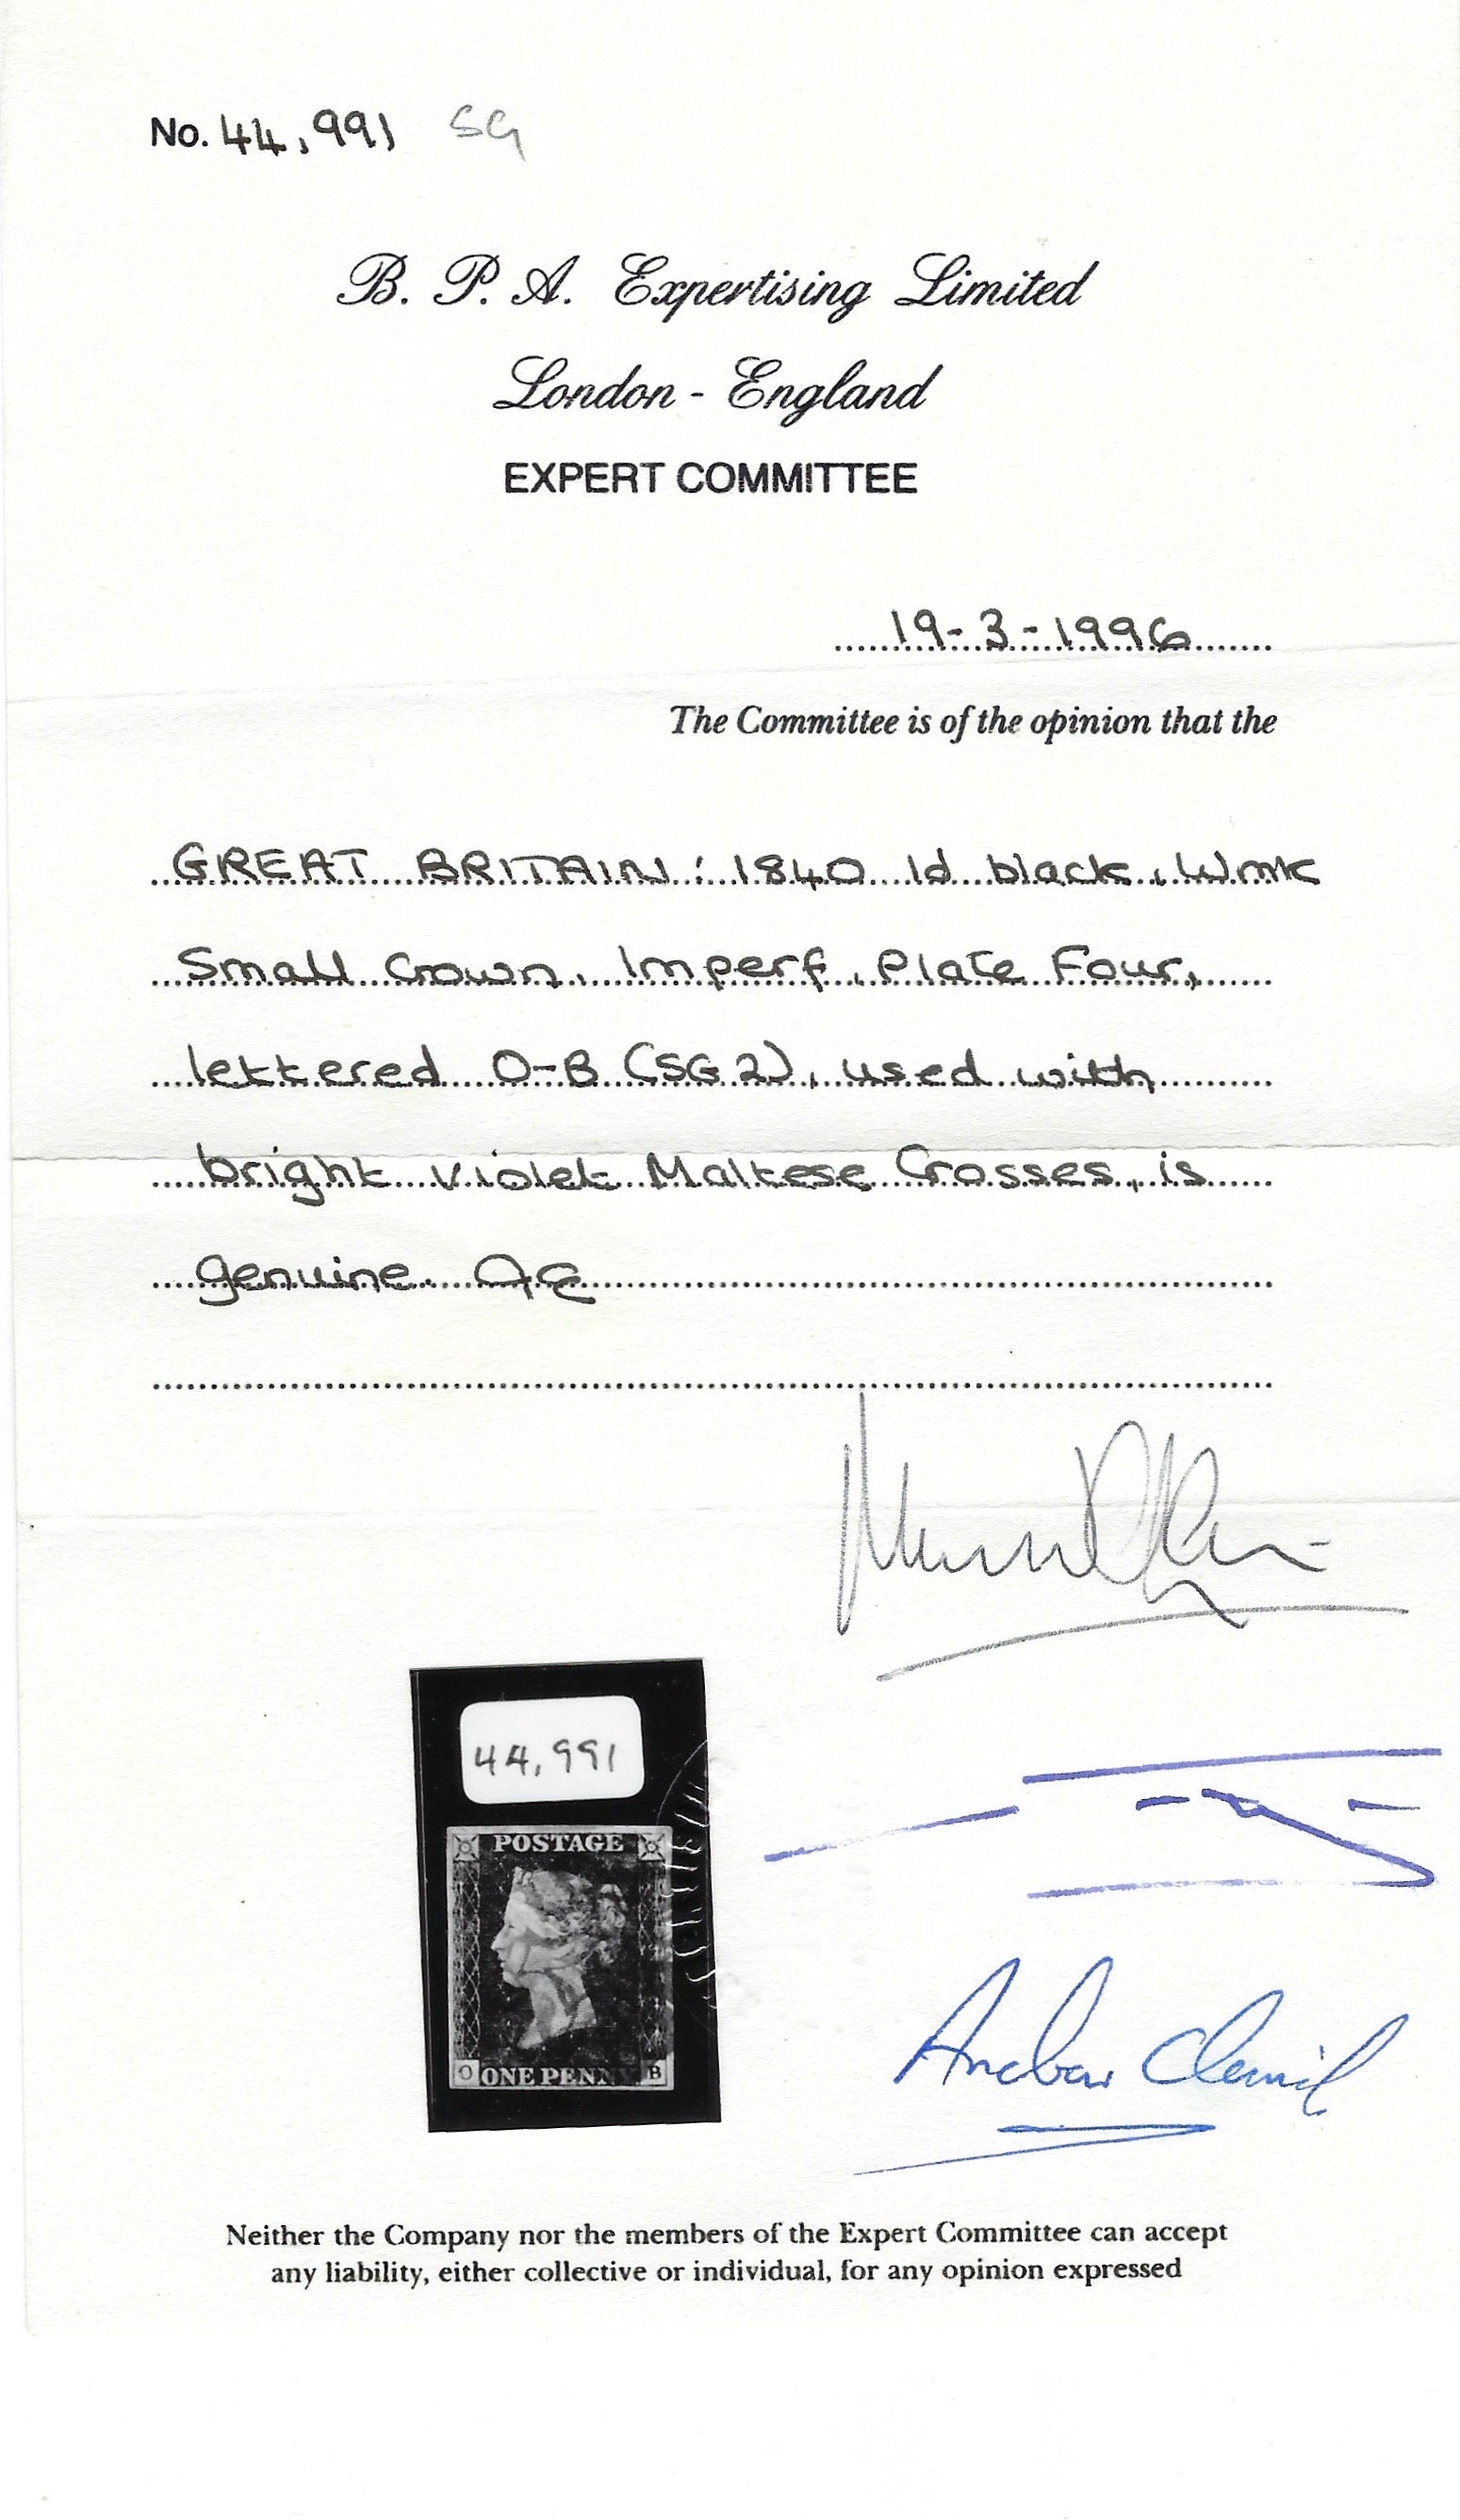 No. 44,991 SG
B. P. A. Expertising Limited
London - England
EXPERT COMMITTEE
19-3-1996
The Committee is of the opinion that the
GREAT BRITAIN: 1840 1d black, Wmk
Small Crown, Imperf, Plate Four,
lettered O-B (SG 2), used with
bright violet Maltese Crosses, is
genuine.
44,991
POSTAGE
O ONE PENNY B
Neither the Company nor the members of the Expert Committee can accept
any liability, either collective or individual, for any opinion expressed